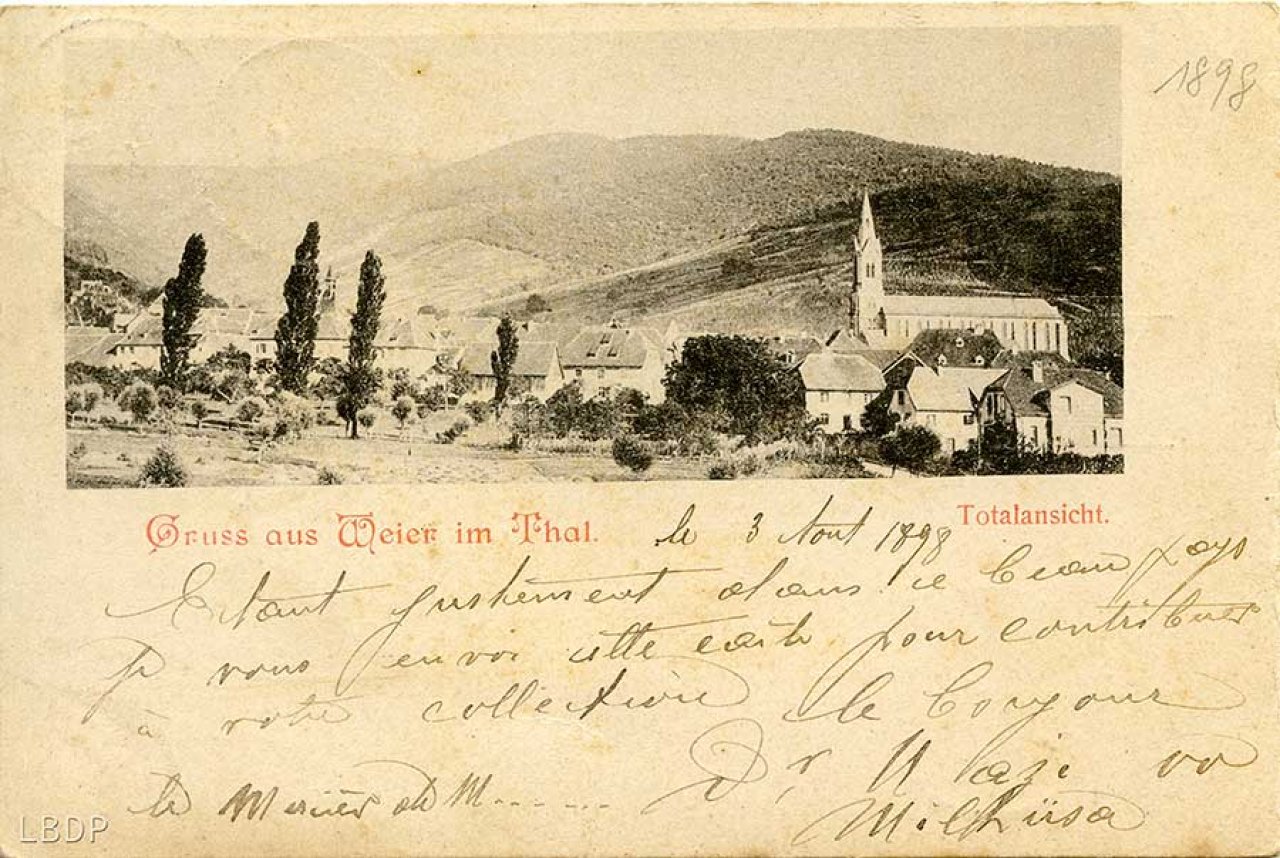 1898
Gruss aus Weier im Thal.
Totalansicht.
le 3 Aout 1898
Etant justement dans ce beau pays
Je vous envoi cette carte pour contribuer
à votre collection le bonjour
Dr
Milhüsa
LBDP